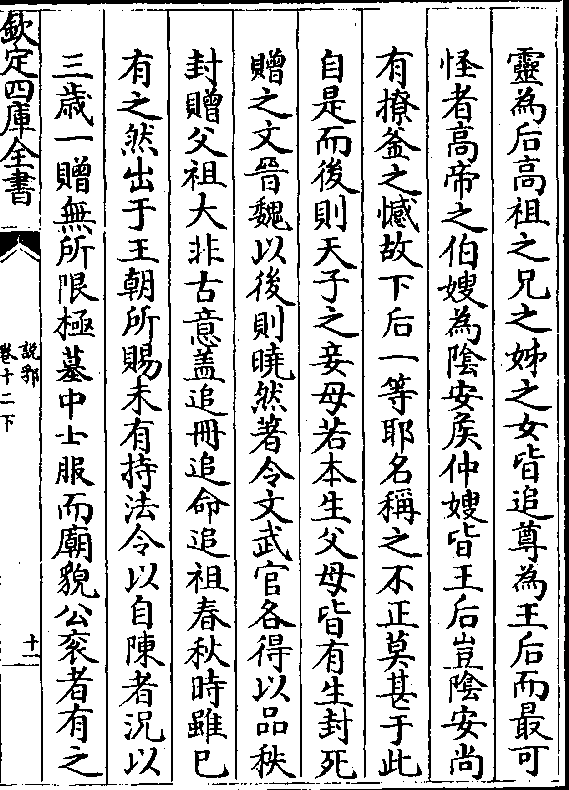 靈為后高祖之兄之姊之女皆追尊為王后而最可
怪者高帝之伯嫂為陰安侯仲嫂皆王后豈陰安尚
有撩釜之憾故下后一等耶名稱之不正莫甚于此
自是而後則天子之妾母若本生父母皆有生封死
贈之文晉魏以後則曉然著令文武官各得以品秩
封贈父祖大非古意蓋追冊追命追祖春秋時雖已
有之然出于王朝所賜未有持法令以自陳者況以
三歳一贈無所限極墓中士服而廟貌公衮者有之
欽定四庫全書
說郛
卷十二下
十一